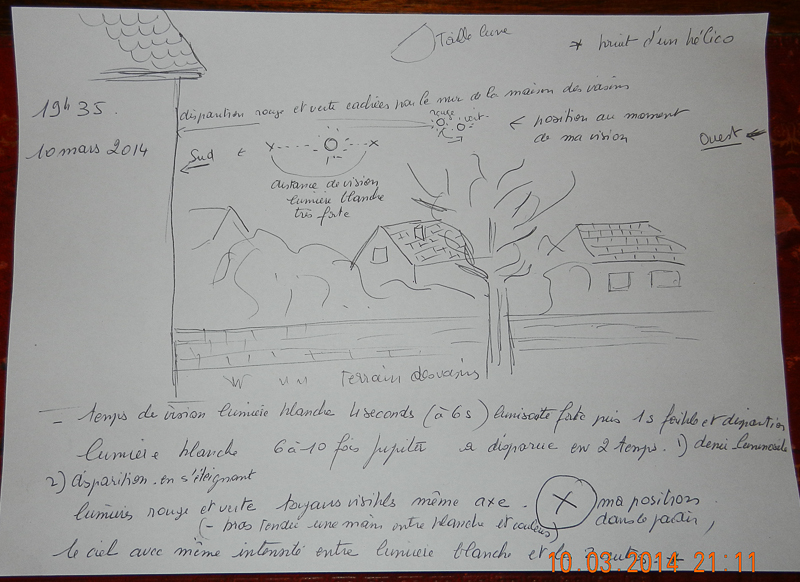 Table lune
* bruit d'un hélico
19h35.
disparition rouge et verte cachées par le mur de la maison des voisins
rouge vert
← position au moment
de ma vision
Ouest ←
10 mars 2014
Sud ←
x x
distance de vision
lumière blanche
très forte
Terrain des voisins
- temps de vision lumière blanche 4 seconds (à 6s) luminosité forte puis 1s faible et disparition
lumière blanche 6 à 10 fois Jupiter a disparue en 2 temps. 1) demi luminosité
2) disparition en s'éteignant
lumières rouge et verte toujours visibles même axe.
X
ma position
dans le jardin,
(- bras tendu une main entre blanche et couleurs)
le ciel avec même intensité entre lumière blanche et les 2 autres
10.03.2014 21:11